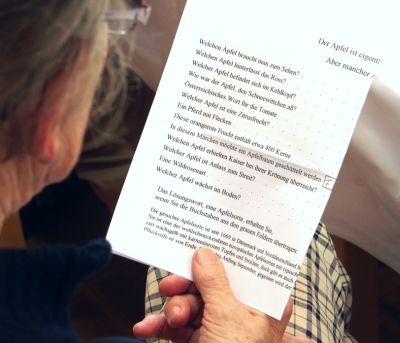 Der Apfel ist eigentl
Aber mancher
Welchen Apfel braucht man zum Sehen?
Welchen Apfel hinterlässt das Ross?
Welcher Apfel befindet sich im Kehlkopf?
Wie war der Apfel, den Schneewittchen aß?
Österreichisches Wort für die Tomate
Welcher Apfel ist eine Zitrusfrucht?
Ein Pferd mit Flecken
Diese orangerote Frucht enthält etwa 400 Kerne
In diesem Märchen möchte ein Apfelbaum geschüttelt werden
Welchen Apfel erhielten Kaiser bei ihrer Krönung überreicht?
Welcher Apfel ist Anlass zum Streit?
Eine Wildrosenart
Welcher Apfel wächst im Boden?
Das Lösungswort, eine Apfelsorte, erhalten Sie,
wenn Sie die Buchstaben aus den grauen Feldern übertragen:
Die gesuchte Apfelsorte ist seit 1669 in Dänemark und Norddeutschland
Sie ist eine der wohlschmeckendsten europäischen Apfelsorten mit